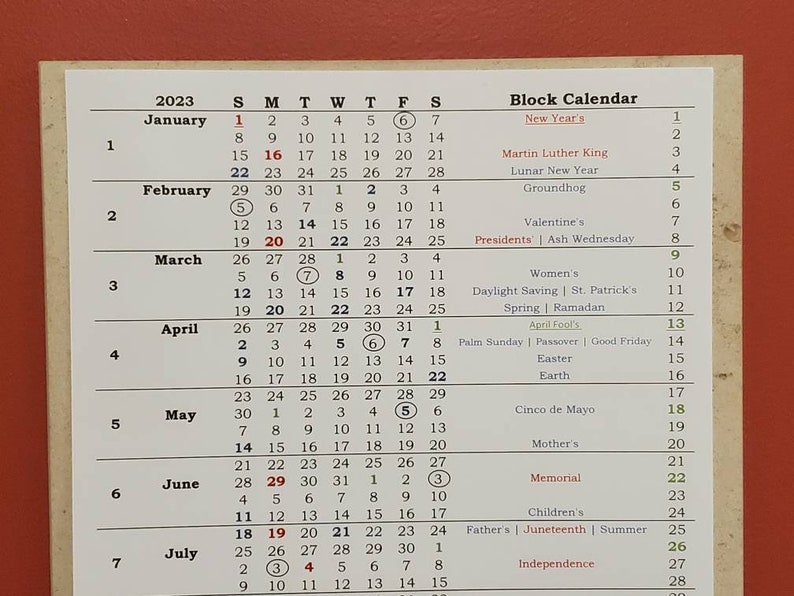 2023 S M T W T F S Block Calendar
January 1 2 3 4 5 6 7 New Year's 1
8 9 10 11 12 13 14 2
1
15 16 17 18 19 20 21 Martin Luther King 3
22 23 24 25 26 27 28 Lunar New Year 4
February 29 30 31 1 2 3 4 Groundhog 5
5 6 7 8 9 10 11 6
2
12 13 14 15 16 17 18 Valentine's 7
19 20 21 22 23 24 25 Presidents' | Ash Wednesday 8
March 26 27 28 1 2 3 4 9
5 6 7 8 9 10 11 Women's 10
3
12 13 14 15 16 17 18 Daylight Saving | St. Patrick's 11
19 20 21 22 23 24 25 Spring | Ramadan 12
April 26 27 28 29 30 31 1 April Fool's 13
2 3 4 5 6 7 8 Palm Sunday | Passover | Good Friday 14
4
9 10 11 12 13 14 15 Easter 15
16 17 18 19 20 21 22 Earth 16
23 24 25 26 27 28 29 17
May 30 1 2 3 4 5 6 Cinco de Mayo 18
5
7 8 9 10 11 12 13 19
14 15 16 17 18 19 20 Mother's 20
21 22 23 24 25 26 27 21
June 28 29 30 31 1 2 3 Memorial 22
6
4 5 6 7 8 9 10 23
11 12 13 14 15 16 17 Children's 24
18 19 20 21 22 23 24 Father's | Juneteenth | Summer 25
July 25 26 27 28 29 30 1 26
7
2 3 4 5 6 7 8 Independence 27
9 10 11 12 13 14 15 28